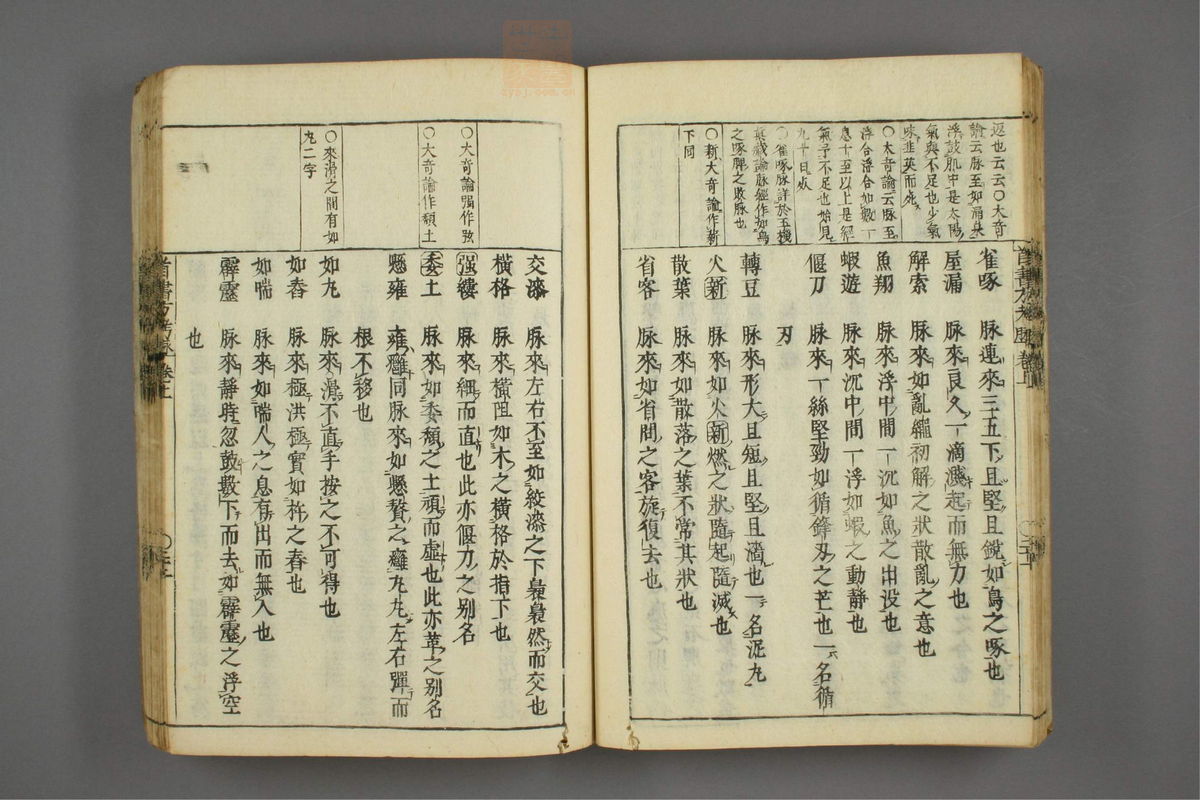 返也云云○大竒
論云脉至如涌泉
浮鼓肌中是太陽
氣與不足也少氣
味韭英而死
○大竒論云脉至
浮合浮合如數一
息十至以上是經
氣予不足也始見
九十日死
○雀啄脉詳於五機
真藏論脉經作如鳥
之啄脾之敗脉也
○新大竒論作薪
下同
雀啄 脉連來三五下且堅且銳如鳥之啄也
屋漏 脉來良久一滴濺起而無力也
解索 脉來如亂繩初解之狀散亂之意也
魚翔 脉來浮中間一沉如魚之出没也
蝦遊 脉來沉中間一浮如蝦之動靜也
偃刀 脉來一絲堅勁如循鋒刃之芒也一名循
刃
轉豆 脉來形大且短且堅且濇也一名泥丸
火新 脉來如火新燃之狀隨起隨滅也
散葉 脉來如散落之葉不常其狀也
省客 脉來如省問之客旋復去也
首書方考
卷上
○大竒論强作弦
○大竒論作頽土
○來滑之間有如
丸二字
交漆 脉來左右不至如絞漆之下裊裊然而交也
橫格 脉來橫阻如木之橫格於指下也
强縷 脉來細而直也此亦偃刀之别名
委土 脉來如委頽之土頑而虛也此亦革之别名
懸雍 雍癰同脉來如懸贅之癰丸丸左右彈而
根不移也
如丸 脉來滑不直手按之不可得也
如舂 脉來極洪極實如杵之舂也
如喘 脉來如喘人之息有出而無入也
霹靂 脉來靜時忽鼓數下而去如霹靂之浮空
也
首書方考
卷上